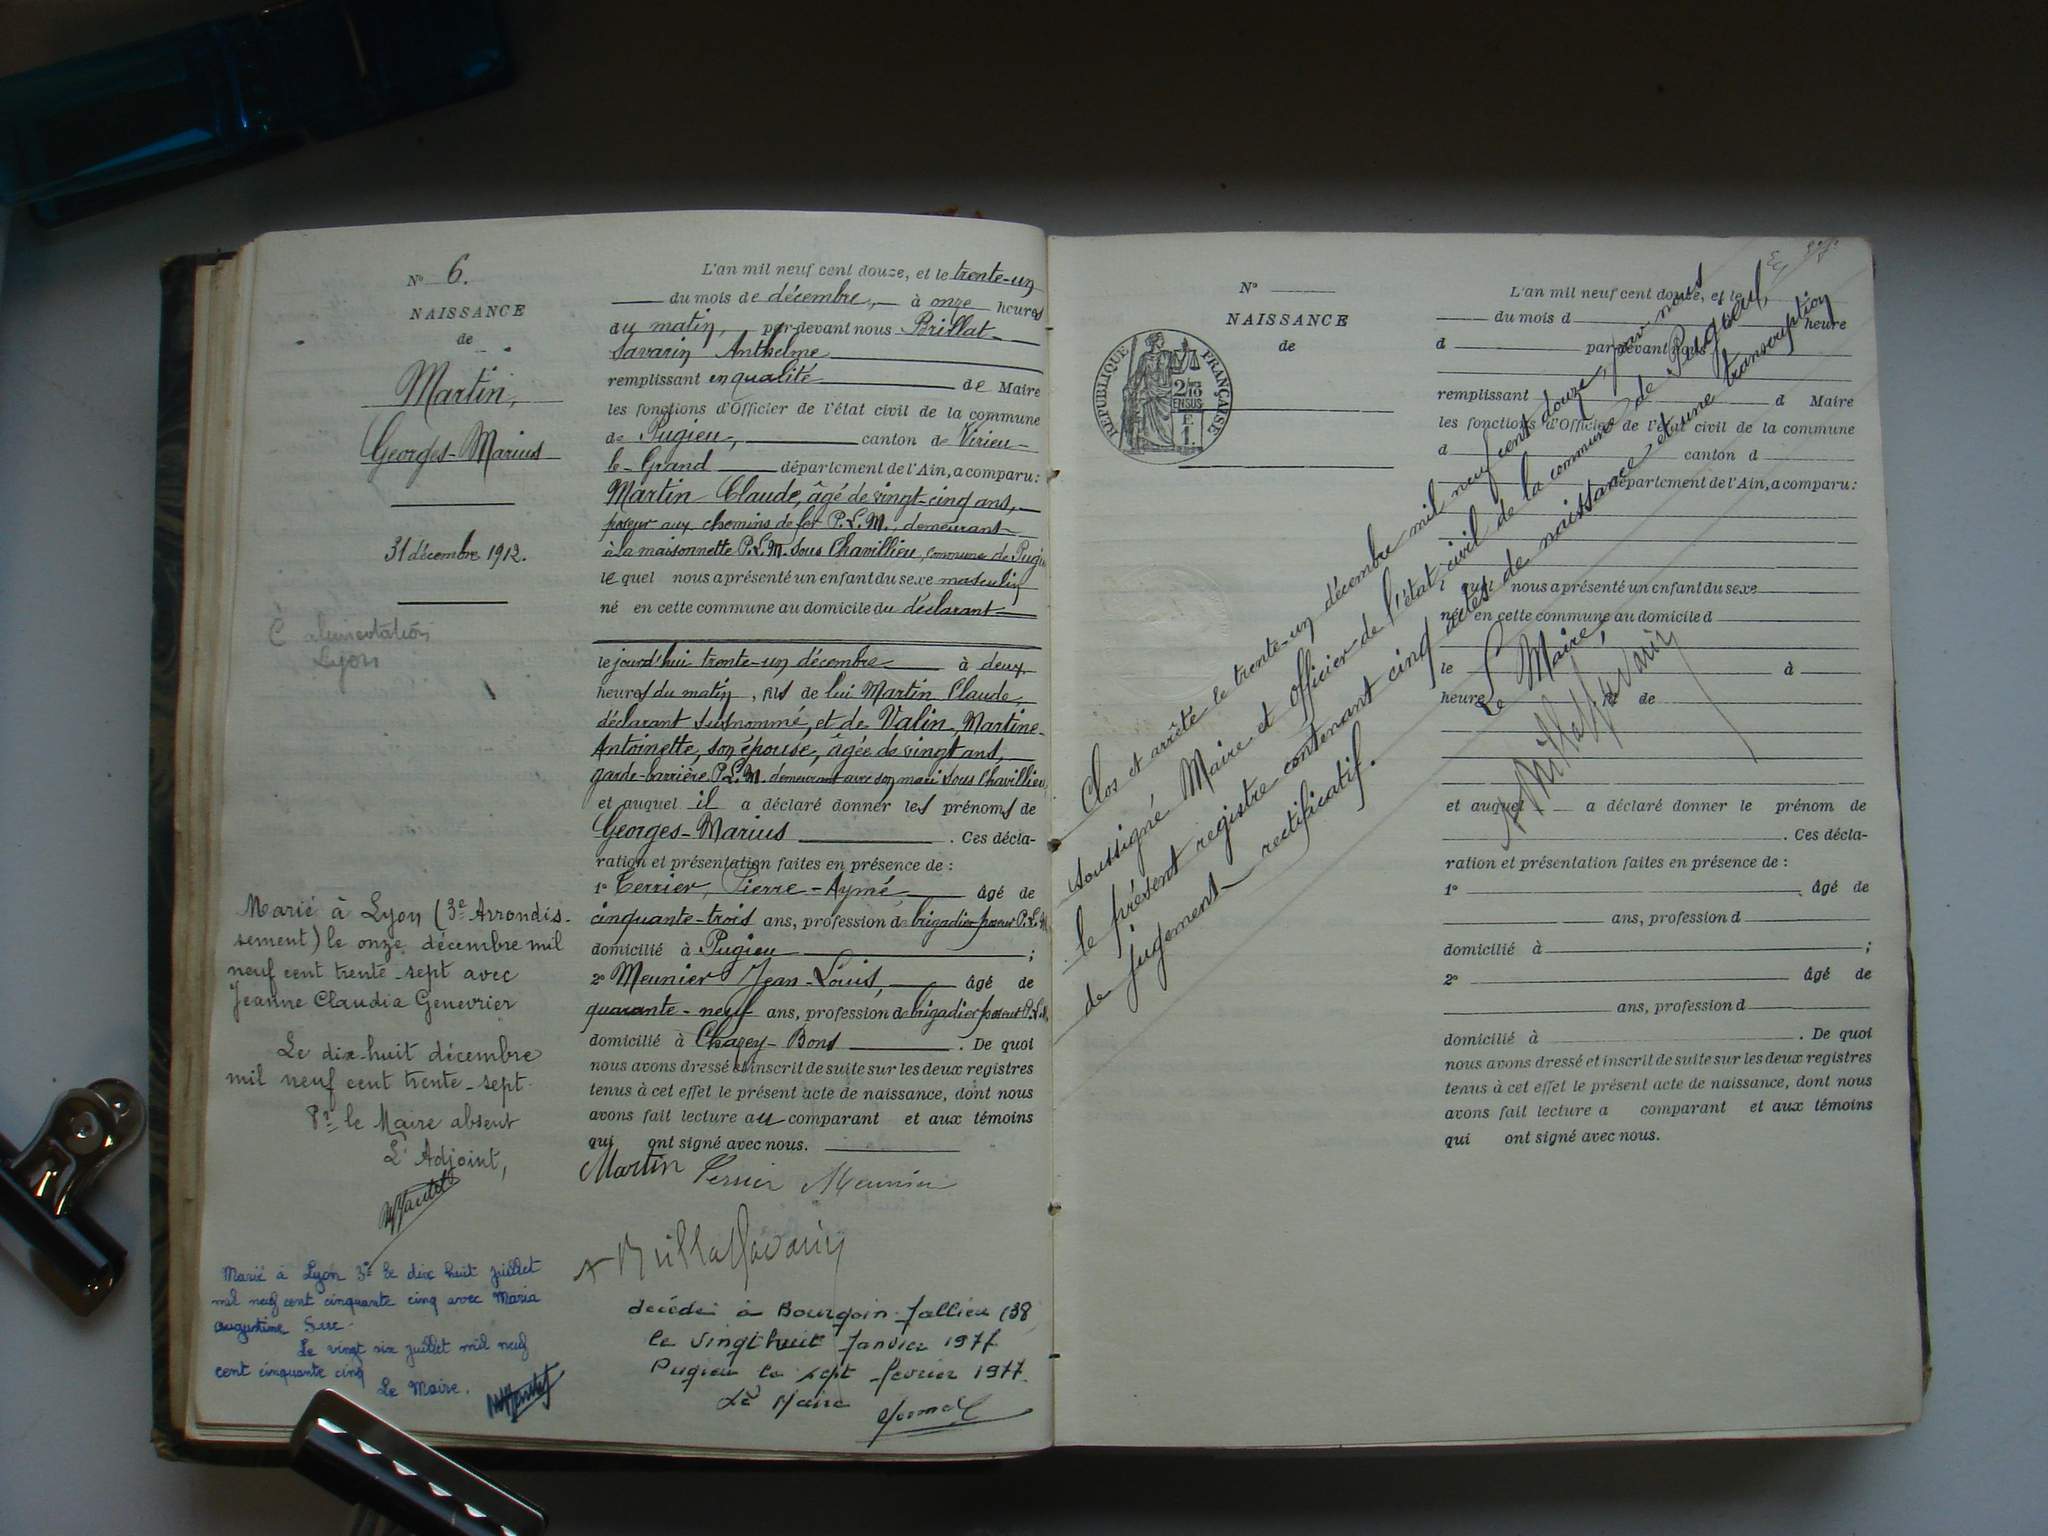 N° 6.
NAISSANCE
de
Martin,
Georges-Marius
31 décembre 1912.
alimentation
Lyon
Marié à Lyon (3e Arrondis-
sement) le onze décembre mil
neuf cent trente-sept avec
Jeanne Claudia Genevrier
Le dix-huit décembre
mil neuf cent trente-sept.
Pr le Maire absent
L'Adjoint,
Marié à Lyon 3e le dix huit juillet
mil neuf cent cinquante cinq avec Maria
augustine
Le vingt six juillet mil neuf
cent cinquante cinq
Le Maire.
L'an mil neuf cent douze, et le trente-un
du mois de décembre, à onze heures
du matin, par-devant nous Brillat-
Savarin Anthelme
remplissant en qualité de Maire
les fonctions d'Officier de l'état civil de la commune
de Pugieu, canton de Virieu-
le-Grand département de l'Ain, a comparu:
Martin Claude, âgé de vingt-cinq ans,
poseur aux chemins de fer P.L.M., demeurant
à la maisonnette P.L.M. sous Chavillieu, commune de
lequel nous a présenté un enfant du sexe masculin
né en cette commune au domicile du déclarant
le jourd'hui trente-un décembre à deux
heures du matin, fils de lui Martin Claude,
déclarant susnommé, et de Valin Martine-
Antoinette, son épouse, âgée de vingt ans,
garde-barrière P.L.M. demeurant avec son mari sous Chavillieu,
et auquel il a déclaré donner les prénoms de
Georges-Marius. Ces décla-
ration et présentation faites en présence de:
1° Terrier, Pierre-Aymé, âgé de
cinquante-trois ans, profession de brigadier poseur P.L.M.
domicilié à Pugieu;
2° Meunier Jean-Louis, âgé de
quarante-neuf ans, profession de brigadier poseur P.L.M.
domicilié à Chazey-Bons. De quoi
nous avons dressé et inscrit de suite sur les deux registres
tenus à cet effet le présent acte de naissance, dont nous
avons fait lecture au comparant et aux témoins
qui ont signé avec nous.
Martin Terrier Meunier
A Brillat Savarin
décédé à Bourgoin-Jallieu (38
le vingt huit Janvier 1977
Pugieu le sept février 1977.
Le Maire
N°
NAISSANCE
de
RÉPUBLIQUE FRANÇAISE
2/10
EN SUS
E
1.
L'an mil neuf cent douze, et le
du mois d heure
d par-devant nous
remplissant d Maire
les fonctions d'Officier de l'état civil de la commune
d canton d
département de l'Ain, a comparu:
l quel nous a présenté un enfant du sexe
né en cette commune au domicile d
le à
heure d de
et auquel a déclaré donner le prénom de
. Ces décla-
ration et présentation faites en présence de:
1° âgé de
ans, profession d
domicilié à ;
2° âgé de
ans, profession d
domicilié à . De quoi
nous avons dressé et inscrit de suite sur les deux registres
tenus à cet effet le présent acte de naissance, dont nous
avons fait lecture a comparant et aux témoins
qui ont signé avec nous.
Clos et arrêté le trente-un décembre mil neuf cent douze, par nous
soussigné Maire et officier de l'état civil de la commune de Pugieu,
le présent registre contenant cinq actes de naissance et une transcription
de jugement rectificatif.
Le Maire,
A Brillat Savarin